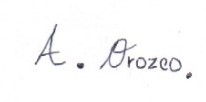 A. Orozco.